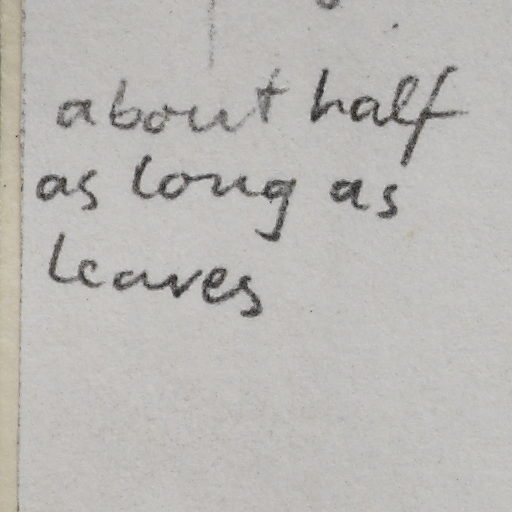 about half
as long as
leaves